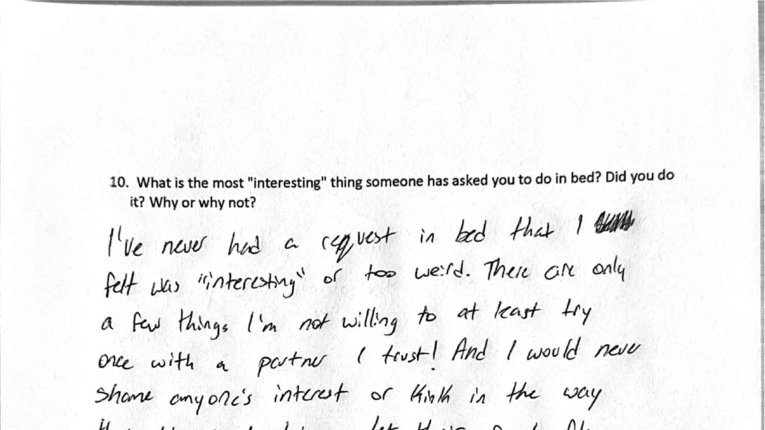 10. What is the most "interesting" thing someone has asked you to do in bed? Did you do
it? Why or why not?
I've never had a request in bed that I
felt was "interesting" or too weird. There are only
a few things I'm not willing to at least try
once with a partner I trust! And I would never
shame anyone's interest or kink in the way